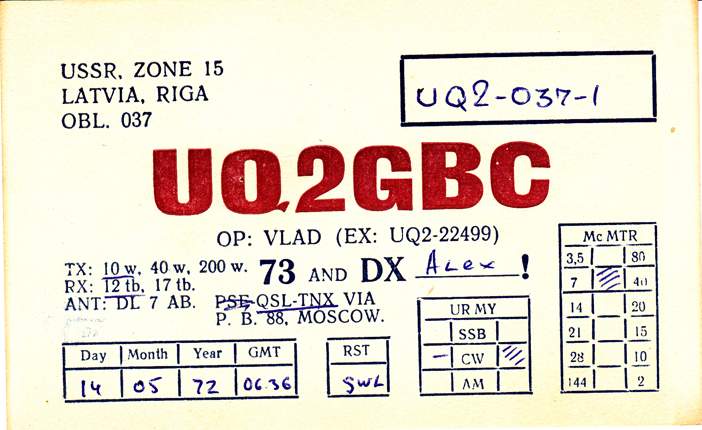 USSR, ZONE 15
LATVIA, RIGA
OBL. 037
UQ2-037-1
UQ2GBC
OP: VLAD (EX: UQ2-22499)
TX: 10 w, 40 w, 200 w.
RX: 12 tb, 17 tb.
ANT: DL 7 AB.
73 AND DX Alex !
PSE-QSL-TNX VIA
P. B. 88, MOSCOW.
Day Month Year GMT
14 05 72 06.36
RST
SWL
UR MY
SSB
– CW
AM
Mc MTR
3,5 80
7 40
14 20
21 15
28 10
144 2